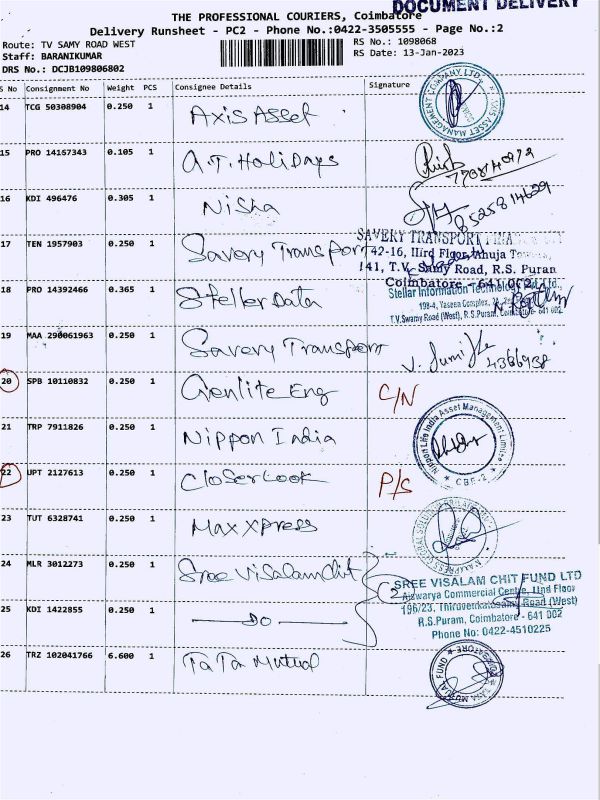 DOCUMENT DELIVERY
THE PROFESSIONAL COURIERS, Coimbatore
Delivery Runsheet - PC2 - Phone No.:0422-3505555 - Page No.:2
Route: TV SAMY ROAD WEST
RS No.: 1098068
Staff: BARANIKUMAR
RS Date: 13-Jan-2023
DRS No.: DCJB109806802
S No Consignment No Weight PCS Consignee Details Signature
14 TCG 50308904 0.250 1 Axis Asset
AXIS ASSET MANAGEMENT COMPANY LTD.
15 PRO 14167343 0.105 1 A.T. Holidays
16 KDI 496476 0.305 1 Nisha
8525814629
17 TEN 1957903 0.250 1 Savery Transport
SAVERY TRANSPORT FINANCE
42-16, IIIrd Floor, Ahuja Towers,
141, T.V. Samy Road, R.S. Puran
Coimbatore - 641 002
18 PRO 14392466 0.365 1 Steller Data
Stellar Information Technology Pvt. Ltd.,
198-4, Yaseen Complex,
T.V.Swamy Road (West), R.S.Puram, Coimbatore - 641 002
19 MAA 290061963 0.250 1 Savery Transport
4366938
20 SPB 10110832 0.250 1 Genlite Eng C/N
21 TRP 7911826 0.250 1 Nippon India
Nippon Life India Asset Management Limited
CBE-2
22 UPT 2127613 0.250 1 Closer Look P/S
23 TUT 6328741 0.250 1 Max Xpress
24 MLR 3012273 0.250 1 Sree Visalam Chit
SREE VISALAM CHIT FUND LTD
Aiswarya Commercial Centre, IInd Floor
196/23, Thiruvenkatasamy Road (West)
R.S.Puram, Coimbatore - 641 002
Phone No: 0422-4510225
25 KDI 1422855 0.250 1 Do
26 TRZ 102041766 6.600 1 Tata Mutual
TATA MUTUAL FUND
COIMBATORE